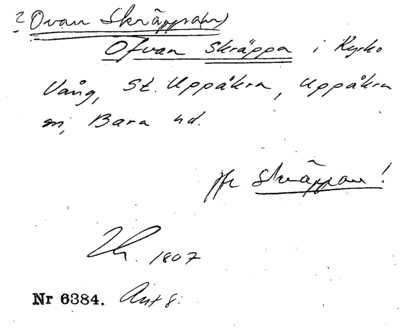 ? Ovan Skräppan)
Ofvan Skräppa i Kyrko
Vång, St. Uppåkra, Uppåkra
sn, Bara hd.
jfr Skräppan!
Lh. 1807
Nr 6384. Ant 8.